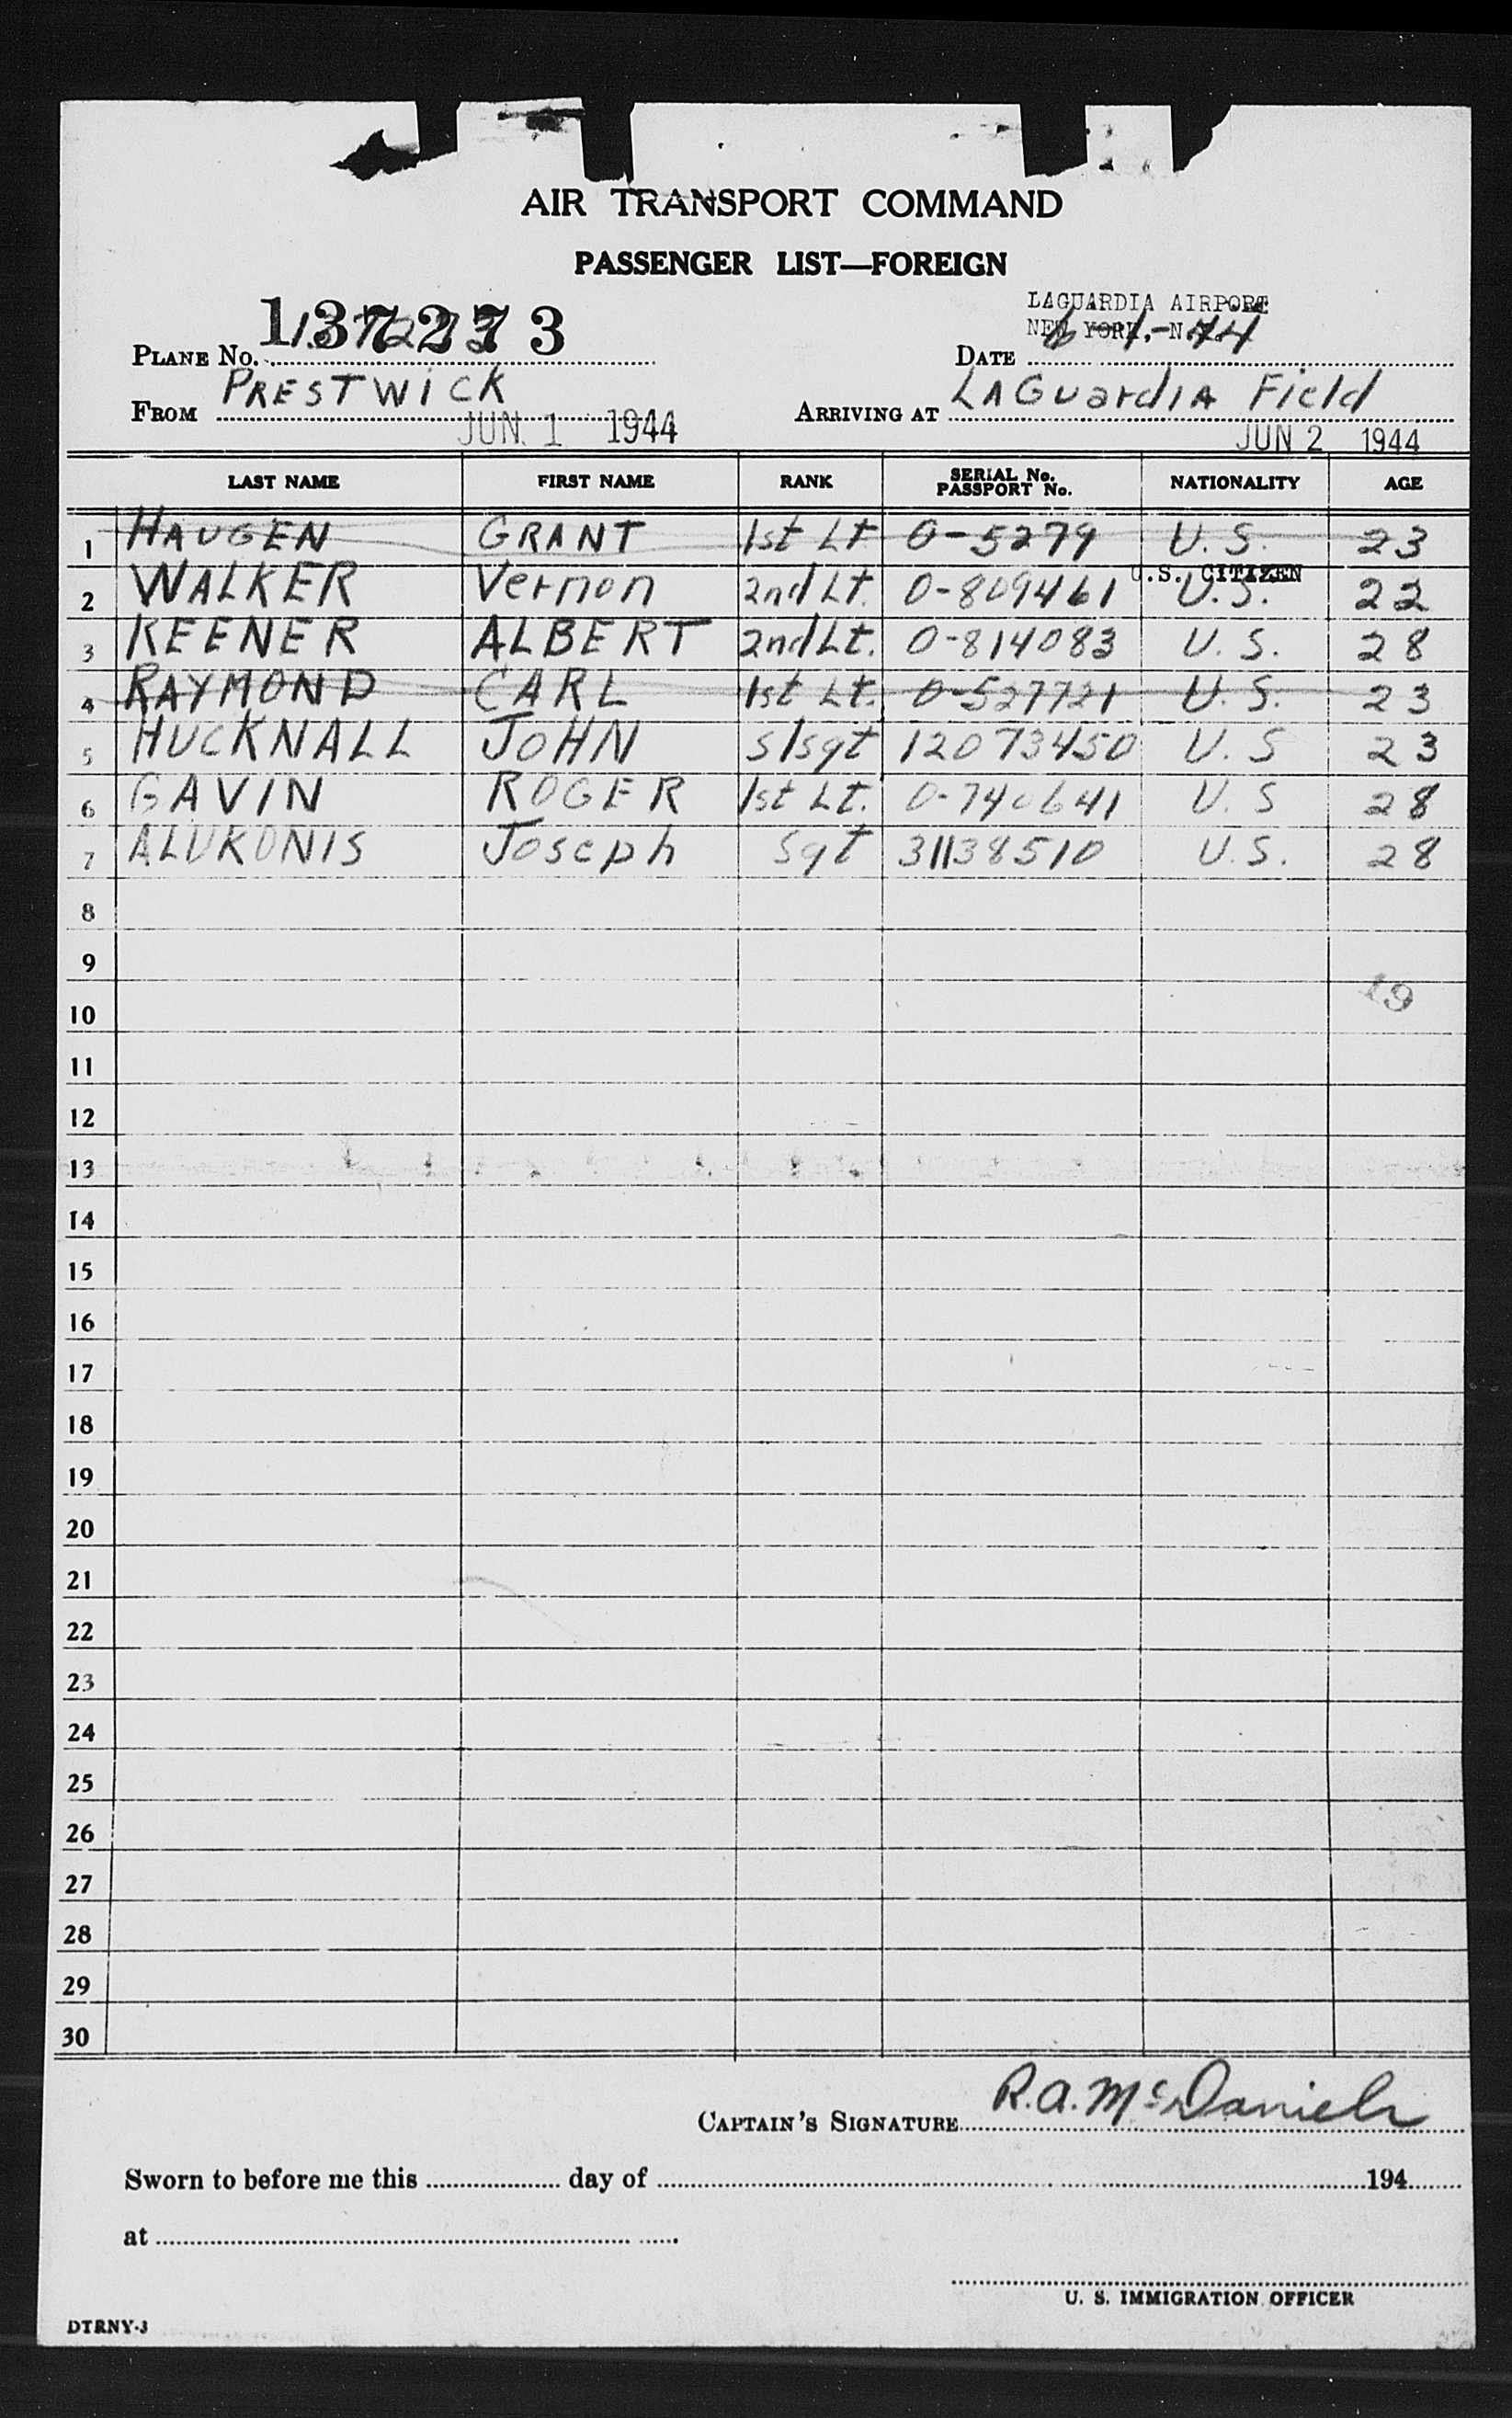 AIR TRANSPORT COMMAND
PASSENGER LIST—FOREIGN
LAGUARDIA AIRPORT
NEW YORK, N.
PLANE No. 137273
DATE 6-1-44
FROM PRESTWICK
ARRIVING AT LAGuardIA Field
JUN. 1 1944
JUN 2 1944
LAST NAME FIRST NAME RANK SERIAL No. PASSPORT No. NATIONALITY AGE
1 HAUGEN GRANT 1st Lt O-5279 U.S. 23
U.S. CITIZEN
2 WALKER Vernon 2nd Lt. O-809461 U.S. 22
3 KEENER ALBERT 2nd Lt. O-814083 U.S. 28
4 RAYMOND CARL 1st Lt. O-527721 U.S. 23
5 HUCKNALL JOHN S/sgt 12073450 U.S 23
6 GAVIN ROGER 1st Lt. O-740641 U.S 28
7 ALUKONIS Joseph Sgt 31138510 U.S. 28
8
9
19
10
11
12
13
14
15
16
17
18
19
20
21
22
23
24
25
26
27
28
29
30
CAPTAIN'S SIGNATURE R.A. McDaniels
Sworn to before me this day of 194
at
U. S. IMMIGRATION OFFICER
DTRNY-3